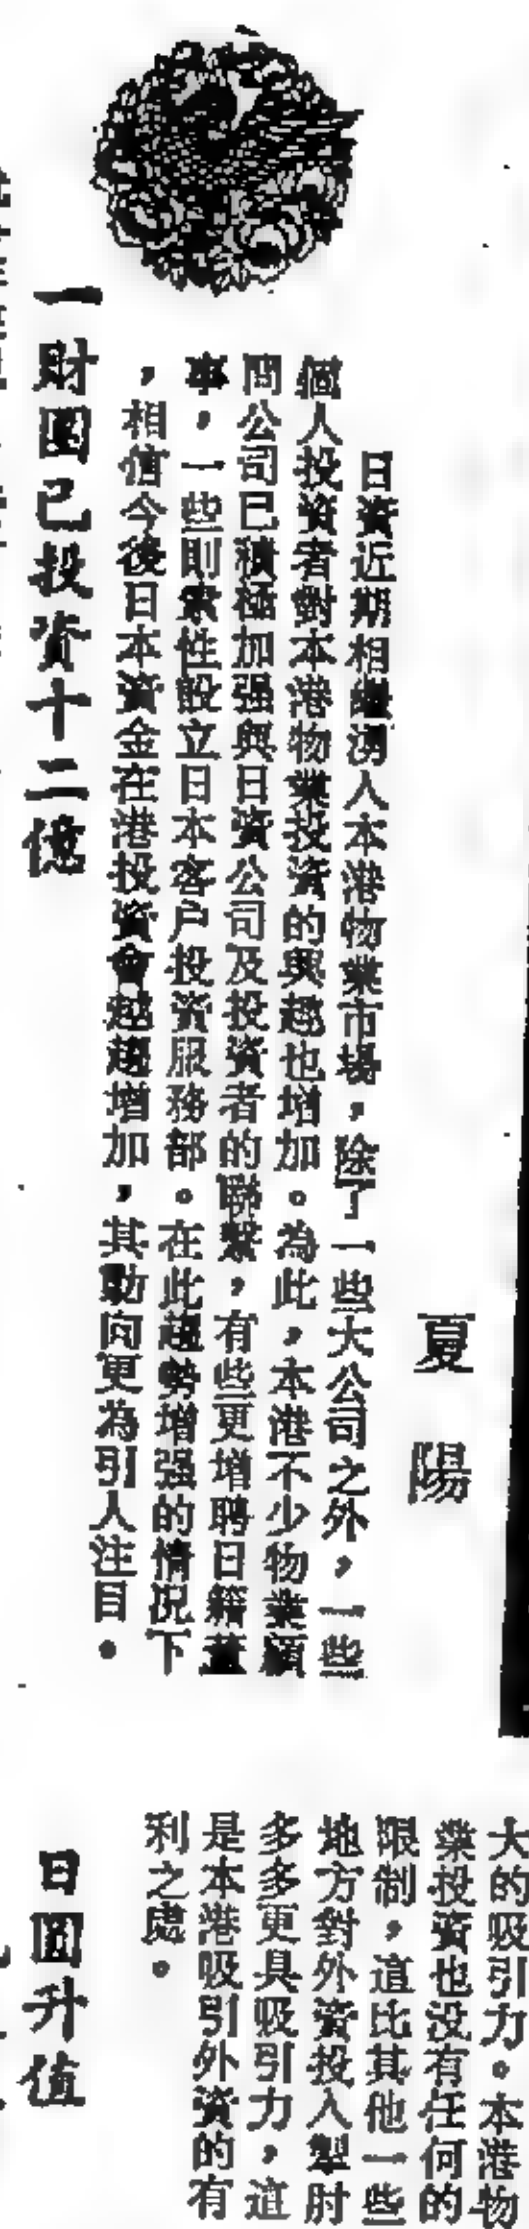 夏陽
日資近期相繼湧入本港物業市場，除了一些大公司之外，一些
個人投資者對本港物業投資的興趣也增加。為此，本港不少物業顧
問公司已積極加强與日資公司及投資者的聯繫，有些更增聘日籍董
事，一些則索性設立日本客戶投資服務部。在此趨勢增强的情况下
，相信今後日本資金在港投資會越趨增加，其動向更為引人注目。
一財團已投資十二億
大的吸引力。本港物
業投資也沒有任何的
限制，這比其他一些
地方對外資投入掣肘
多多更具吸引力，這
是本港吸引外資的有
利之處。
日圓升值